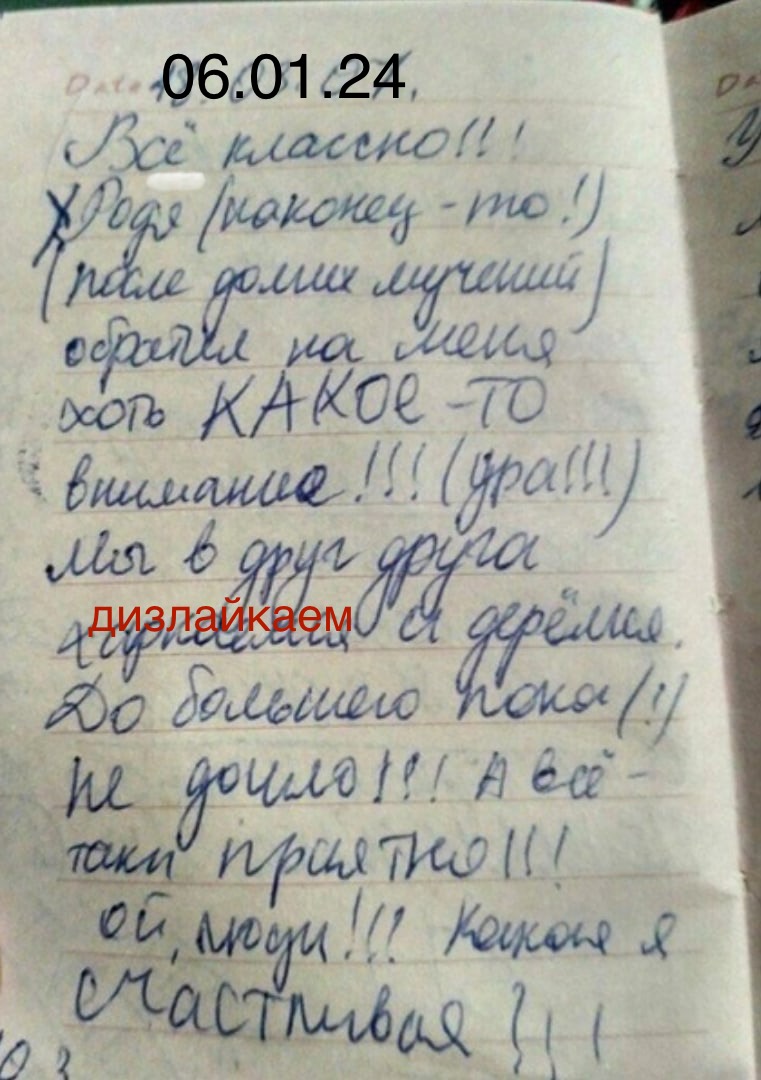 06.01.24
Всё классно!!!
Родя (наконец-то!)
(после долгих мучений)
обратил на меня
хоть КАКОЕ-ТО
внимание!!! (ура!!!)
Мы в друг друга
дизлайкаем и дерёмся.
До большего пока (!)
не дошло!!! А всё-
таки приятно!!!
ой, люди!!! Какая я
счастливая !!!